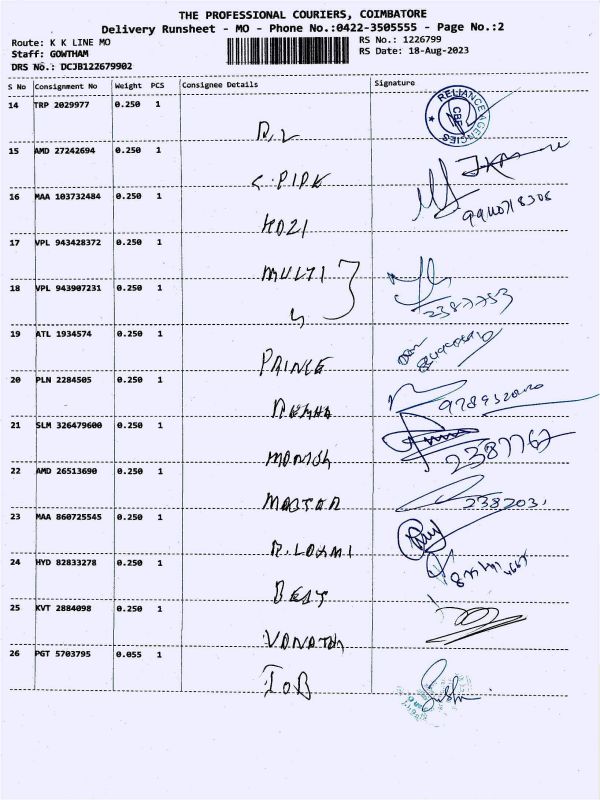 THE PROFESSIONAL COURIERS, COIMBATORE
Delivery Runsheet - MO - Phone No.:0422-3505555 - Page No.:2
Route: K K LINE MO
Staff: GOWTHAM
DRS No.: DCJB122679902
RS No.: 1226799
RS Date: 18-Aug-2023
S No Consignment No Weight PCS Consignee Details Signature
14 TRP 2029977 0.250 1
RELIANCE AGENCIES
CBE
15 AMD 27242694 0.250 1
16 MAA 103732484 0.250 1
17 VPL 943428372 0.250 1
MULTI
18 VPL 943907231 0.250 1
2387753
19 ATL 1934574 0.250 1
PRINCE
20 PLN 2284505 0.250 1
21 SLM 326479600 0.250 1
MONISH
2387767
22 AMD 26513690 0.250 1
MASTER
238203
23 MAA 860725545 0.250 1
R. LAXMI
24 HYD 82833278 0.250 1
BEST
25 KVT 2884098 0.250 1
26 PGT 5703795 0.055 1
IOB